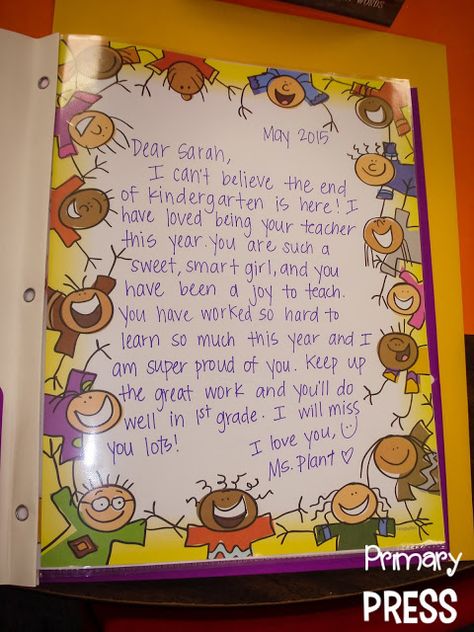 WORDS
May 2015
Dear Sarah,
I can't believe the end
of kindergarten is here! I
have loved being your teacher
this year. You are such a
sweet, smart girl, and you
have been a joy to teach.
You have worked so hard to
learn so much this year and I
am super proud of you. Keep up
the great work and you'll do
well in 1st grade. I will miss
you lots!
I love you,
Ms. Plant ♡
Primary
PRESS